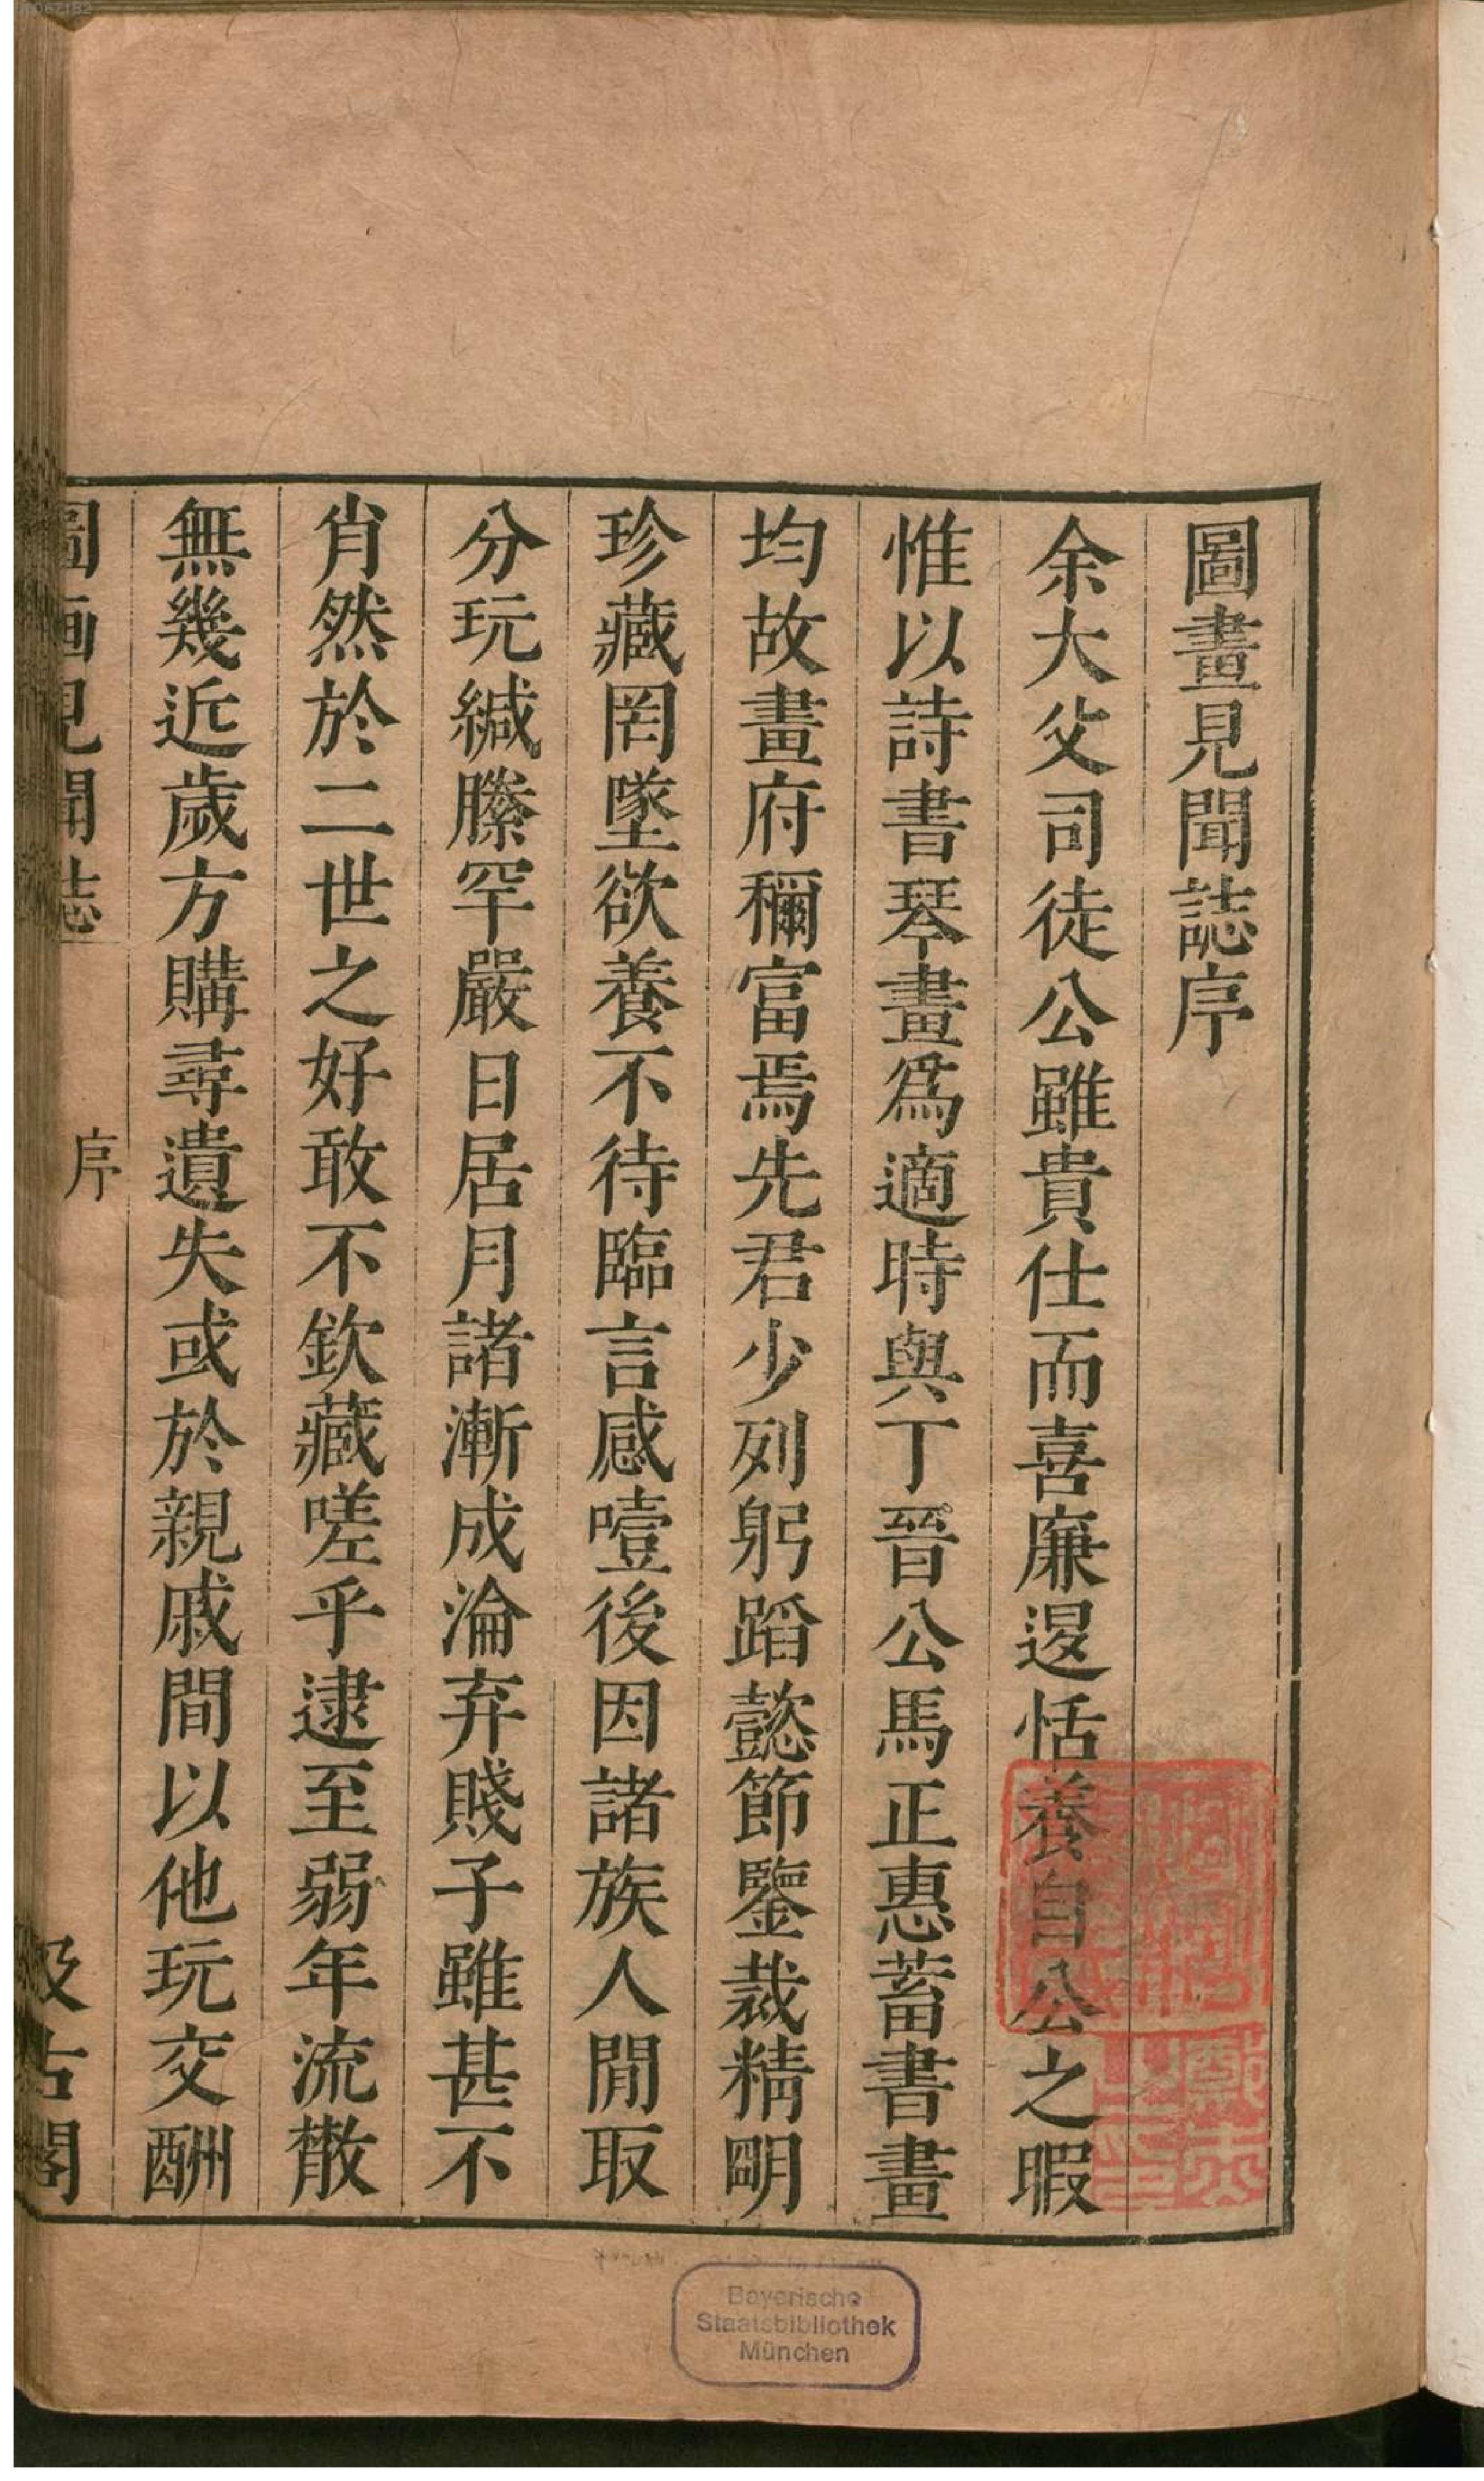 圖畫見聞誌序
余大父司徒公雖貴仕而喜廉退恬養自公之暇
惟以詩書琴畫爲適時與丁晉公馬正惠蓄書畫
均故畫府稱富焉先君少列躬蹈懿節鑒裁精明
珍藏罔墜欲養不待臨言感噎後因諸族人閒取
分玩緘縢罕嚴日居月諸漸成淪弃賤子雖甚不
肖然於二世之好敢不欽藏嗟乎逮至弱年流散
無幾近歲方購尋遺失或於親戚間以他玩交酬
圖畫見聞誌
序
汲古閣
Bayerische
Staatsbibliothek
München